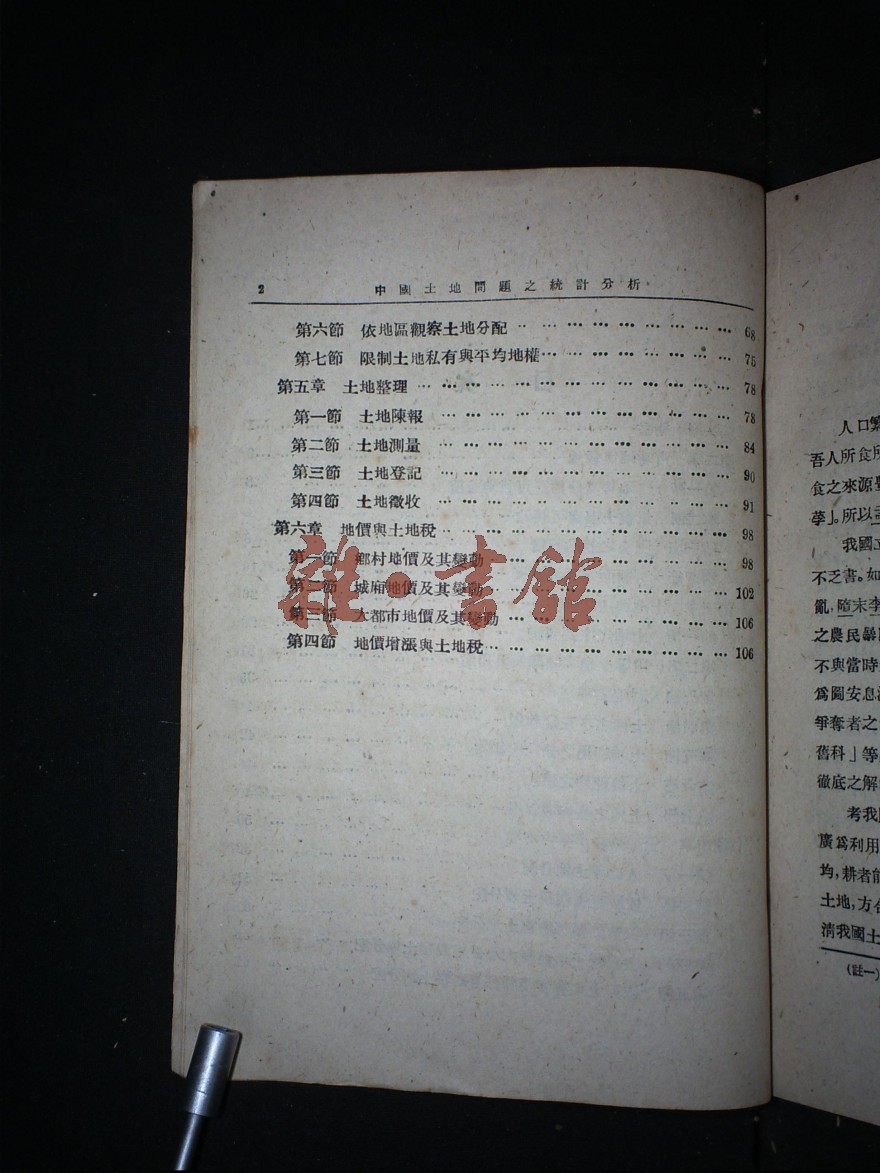 2 中國土地問題之統計分析
第六節 依地區觀察土地分配 … … … … … … … … … 68
第七節 限制土地私有與平均地權 … … … … … … … … 75
第五章 土地整理 … … … … … … … … … … … … 78
第一節 土地陳報 … … … … … … … … … … … 78
第二節 土地測量 … … … … … … … … … … … 84
第三節 土地登記 … … … … … … … … … … … 90
第四節 土地徵收 … … … … … … … … … … … 91
第六章 地價與土地稅 … … … … … … … … … … … 98
第一節 鄉村地價及其變動 … … … … … … … … … 98
第二節 城廂地價及其變動 … … … … … … … … … 102
第三節 大都市地價及其變動 … … … … … … … … 106
第四節 地價增漲與土地稅 … … … … … … … … … 106
雜·書館
人口繁
吾人所食所
食之來源豐
莩」。所以
我國立
不乏書。如
亂，隋末李
之農民暴
不與當時
為圖安息
爭奪者之
舊科」等
徹底之解
考我
廣爲利用
均，耕者
土地，方
淸我國土
(註一)